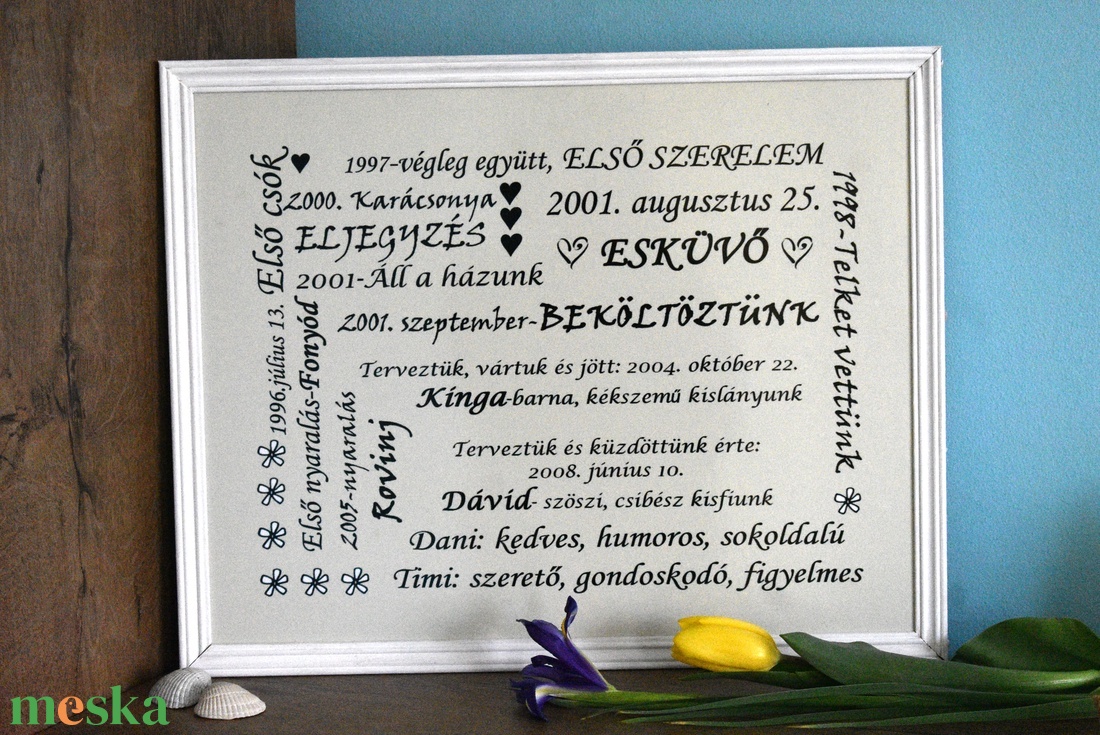 1996.július 13. Első csók
1997-végleg együtt, ELSŐ SZERELEM
2000. Karácsonya
ELJEGYZÉS
2001. augusztus 25.
ESKÜVŐ
2001-Áll a házunk
2001. szeptember-BEKÖLTÖZTÜNK
1998-Telket vettünk
Első nyaralás-Fonyód
2005-nyaralás
Rovinj
Terveztük, vártuk és jött: 2004. október 22.
Kinga-barna, kékszemű kislányunk
Terveztük és küzdöttünk érte:
2008. június 10.
Dávid- szöszi, csibész kisfiunk
Dani: kedves, humoros, sokoldalú
Timi: szerető, gondoskodó, figyelmes
meska